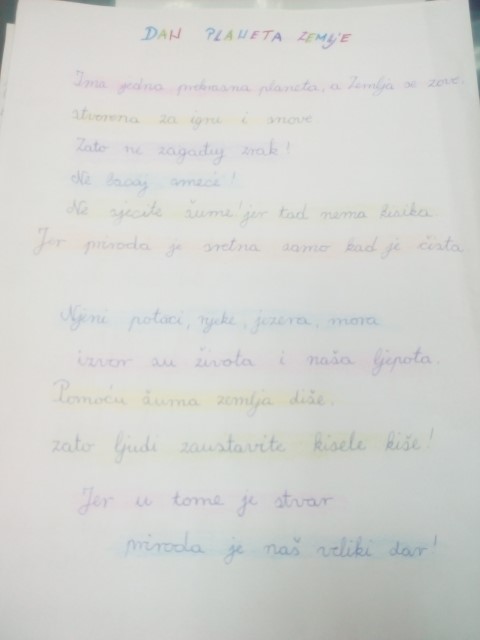 DAN PLANETA ZEMLJE
Ima jedna prekrasna planeta, a Zemlja se zove.
stvorena za igru i snove
Zato ne zagađuj zrak!
Ne bacaj smeće!
Ne sjecite šume! jer tad nema
Jer priroda je sretna samo kad je čista
Njeni potoci, rijeke, jezera, mora
izvor su života i naša ljepota.
Pomoću šuma zemlja diše.
zato ljudi zaustavite kisele kiše!
Jer u tome je stvar
priroda je naš veliki dar!